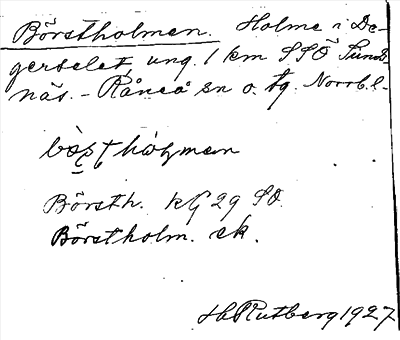 Börstholmen. Holme i De-
gerselet, ung. 1 km SSÖ Sund-
näs. - Råneå sn o. tg. Norrb. l.
Börsth. kG 29 SO
Börstholm. ek.
Rutberg 1927